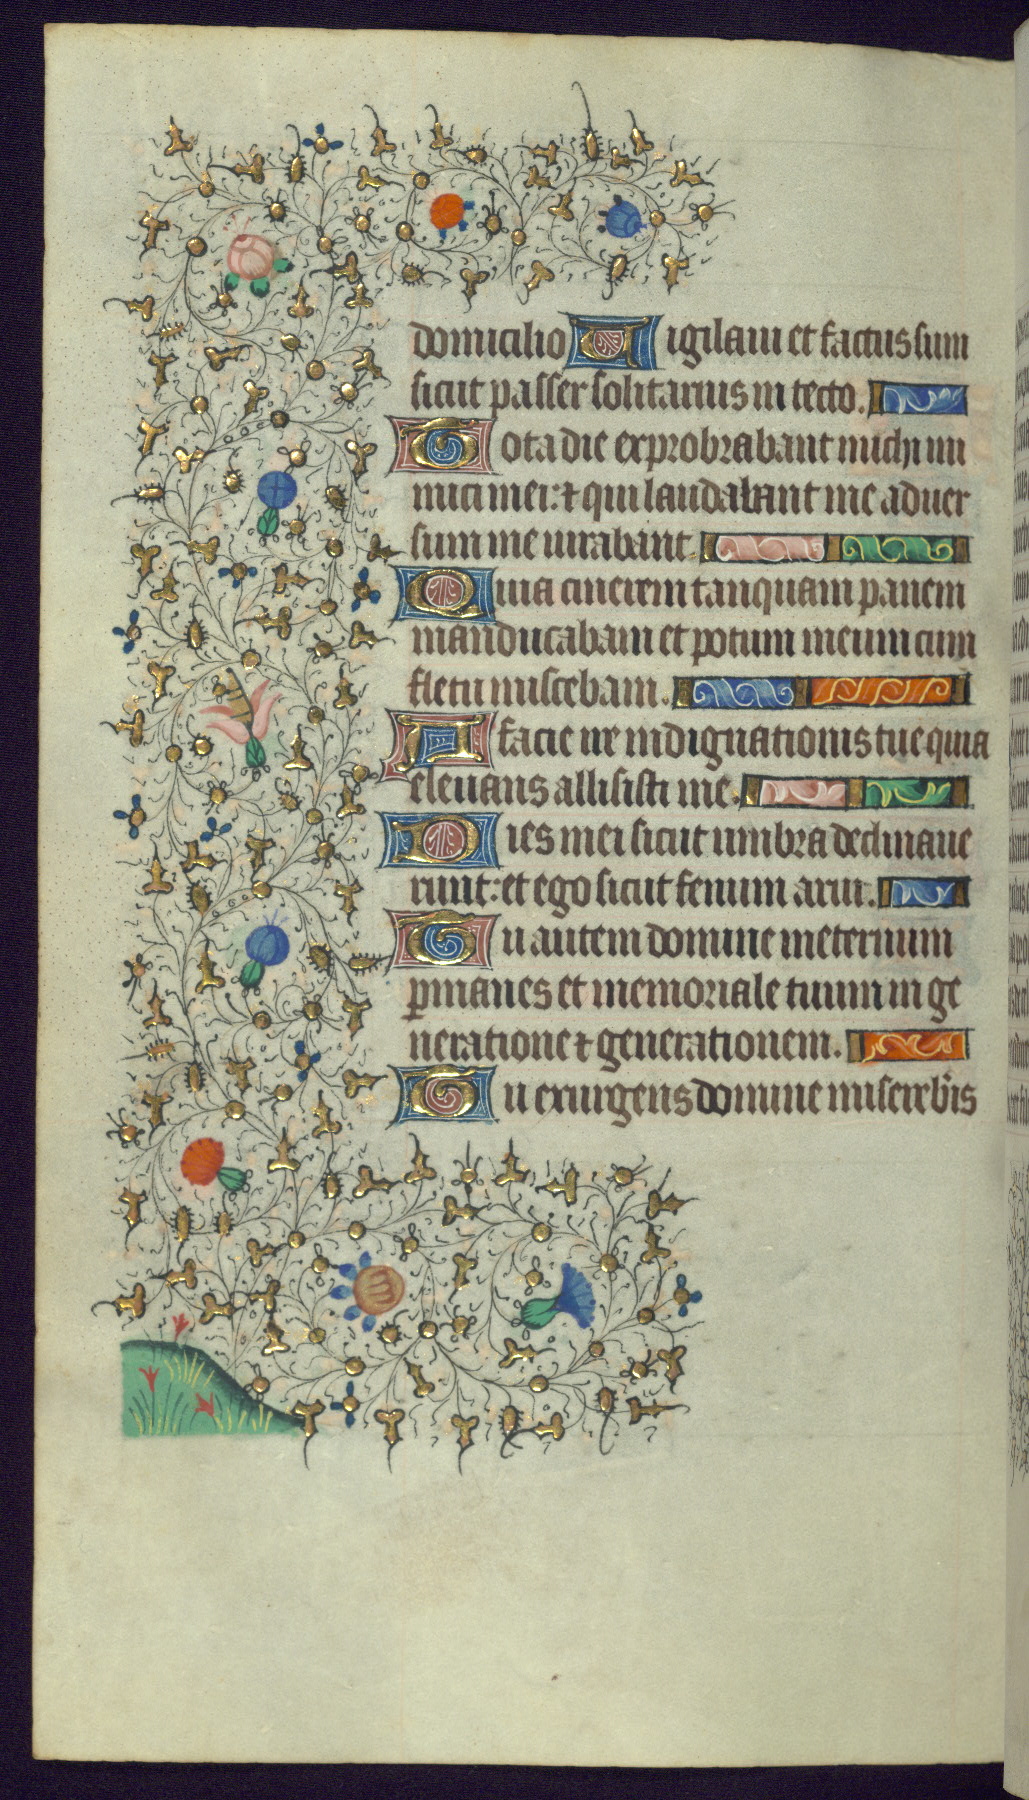 domicilio Uigilaui et factus sum
sicut passer solitarius in tecto.
Tota die exprobrabant michi ini
mici mei: ⁊ qui laudabant me aduer
sum me iurabant
Quia cinerem tanquam panem
manducabam et potum meum cum
fletu miscebam.
A facie ire indignationis tue quia
eleuans allisisti me.
Dies mei sicut umbra declinaue
runt: et ego sicut fenum arui.
Tu autem domine in eternum
ꝑmanes et memoriale tuum in ge
neratione ⁊ generationem.
Tu exurgens domine misereb̾is